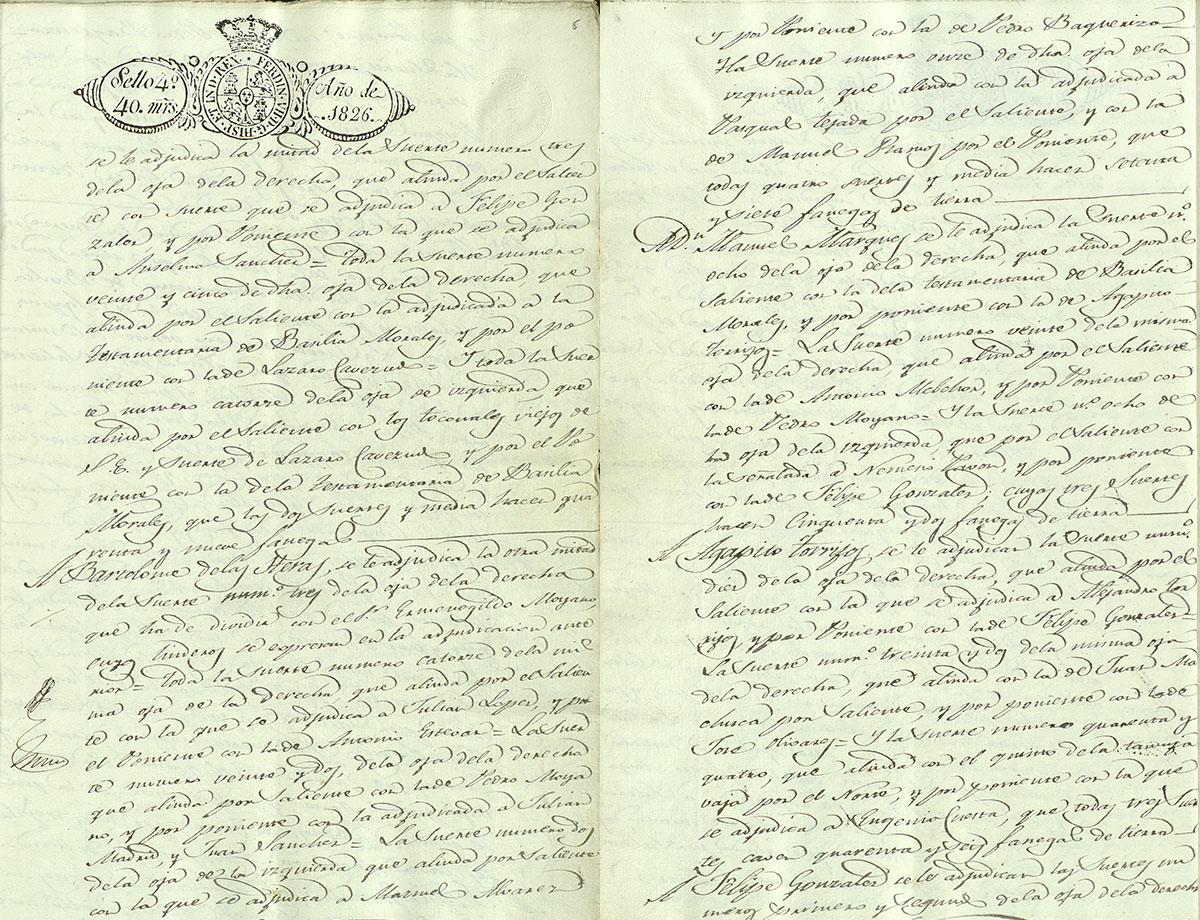 6
Sello 4º.
40. mrs.
FERDIN. VII. D. G. HISP. ET IND. REX
Año de
1826.
se le adjudica la mitad dela Suerte numero tres
dela oja dela derecha, que alinda por el Salien
te con suerte que se adjudica a Felipe Gon
zalez, y por Poniente con la que se adjudica
a Anselmo Sanchez = toda la Suerte numero
veinte y cinco de dha oja dela derecha, que
alinda por el Saliente con la adjudicada a la
testamentaria de Basilia Morales, y por el po
niente con lade Lazaro Caverud = Y toda la Suer
te numero catorze dela oja de izquierda, que
alinda por el Saliente con los toconales viejos de
S. E. y Suerte de Lazaro Caverud y por el Po
niente con la dela testamentaria de Basilia
Morales, que las dos Suertes y media hacen qua
renta y nueve fanegas
Bartolome delas Heras, se le adjudica la otra mitad
dela Suerte num.º tres dela oja dela derecha
que ha de dividir con el Sr. Ermenegildo Moyano,
cuyos linderos se expresan en la adjudicacion ante
rior = toda la Suerte numero catorze dela mis
ma oja de la derecha que alinda por el Salien
te con la que se adjudica a Julian Lopez, y por
el Poniente con lade Antonio Estevan = La Suer
te numero veinte ydos, dela oja dela derecha
que alinda por Saliente con lade Pedro Moya
no, y por poniente con la adjudicada a Julian
Madrid, y Juan Sanchez = La Suerte numero dos
dela oja de la izquierda que alinda por Saliente
con la que se adjudica a Manuel Alvarez
y por Poniente con la de Pedro Baquerizo
Yla Suerte numero onze de dha oja dela
izquierda, que alinda con la adjudicada a
Pasqual tejada por el Saliente, y con la
de Manuel Ramos por el Poniente, que
todas quatro suertes y media hacen setenta
y siete fanegas de tierra
Manuel Marques se le adjudica la Suerte nº.
ocho dela oja dela derecha, que alinda por el
Saliente con la dela testamentaria de Basilia
Morales, y por poniente con la de Agapito
Torrijos = La Suerte numero veinte dela misma
oja dela derecha, que alinda por el Saliente
con lade Antonio Melchor, y por Poniente con
lade Pedro Moyano = Y la Suerte nº. ocho de
la oja dela izquierda que por el Saliente con
la señalada a Nemesio Pavon, y por poniente
con lade Felipe Gonzalez; cuyas tres Suertes
hacen Cinquenta ydos fanegas de tierra
Agapito Torrijos, se le adjudican la Suerte num.º
diez de la oja dela derecha, que alinda por el
Saliente con la que se adjudica a Alejandro Tor
rijos, y por Poniente con lade Felipe Gonzalez =
La Suerte num.º treinta ydos dela misma oja
dela derecha, que alinda con la de Juan Ma
chuca por Saliente, y por poniente con lade
Jose Olivares = Y la Suerte numero quarenta y
quatro, que alinda con el quinto dela
vaja por el Norte, y por poniente con la que
se adjudica a Eugenio Cuesta, que todas tres Suer
tes caven quarenta y seis fanegas de tierra
Felipe Gonzalez se le adjudican las Suertes nu
meros primero y segundo dela oja dela derecha